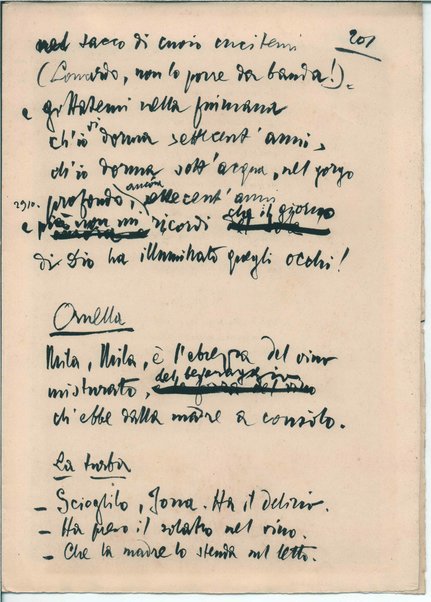 201
nel sacco di cuoio cucitemi
(Leonardo, non lo porre da banda!)
e gittatemi nella fiumana
ch'io di dorma settecent'anni,
ch'io dorma sott'acqua, nel gorgo
profondo, ancora settecent'anni
2910. e più non mi ricordi che il giorno
di Dio ha illuminato quegli occhi!
Ornella
Mila, Mila, è l'ebrezza del vino
misturato, del beveraggio
ch'ebbe dalla madre a consolo.
La turba
– Scioglilo, Jona. Ha il delirio.
– Ha preso il solatro nel vino.
– Che la madre lo stenda sul letto.